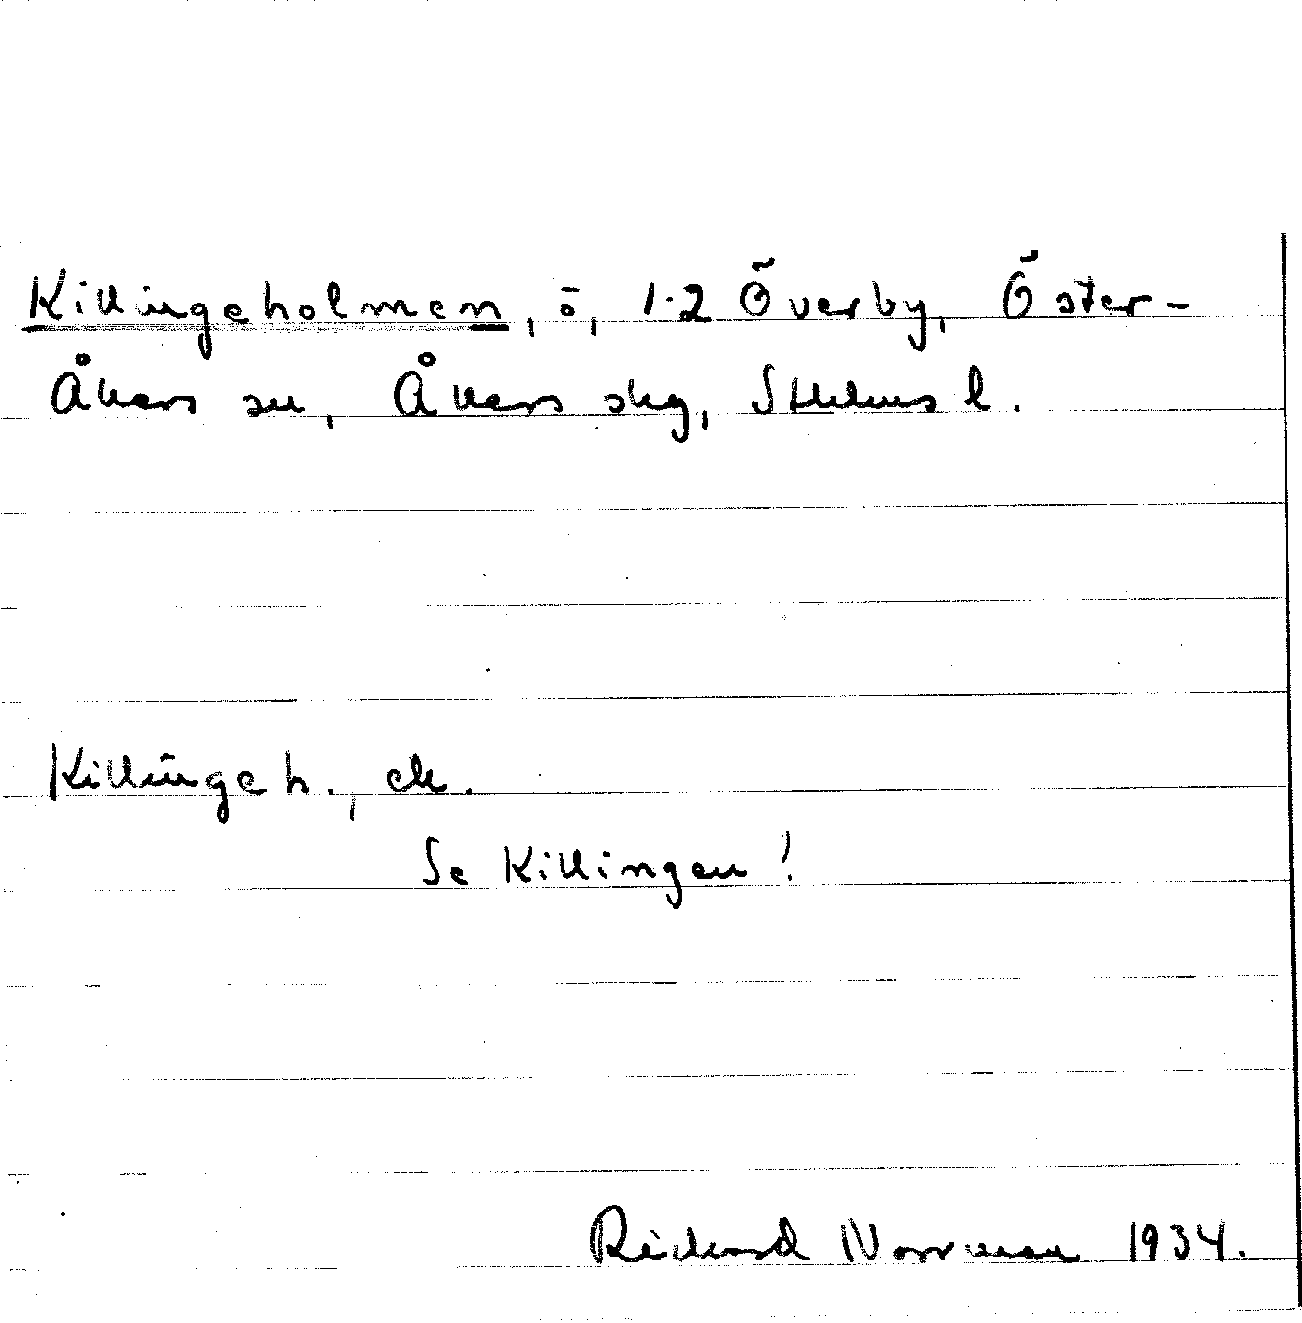 Killingeholmen, ö, 1-2 Överby, Öster-
Åkers sn, Åkers skg, Sthlms l.
Killingeh., ek.
Se Killingen!
Richard Norrman 1934.